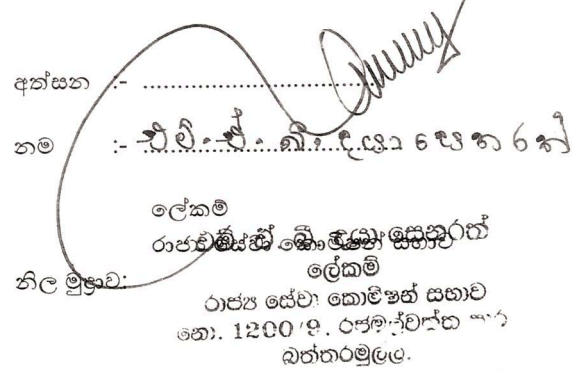 අත්සන :- ..............................
නම :- එම්. ඒ. බී. දයා සෙනරත්
ලේකම්
රාජ්‍ය සේවා කොමිෂන් සභාව
එම් ඒ බී දයා සෙනරත්
නිල මුද්‍රාව:
ලේකම්
රාජ්‍ය සේවා කොමිෂන් සභාව
නො. 1200/9, රජමල්වත්ත පාර
බත්තරමුල්ල.